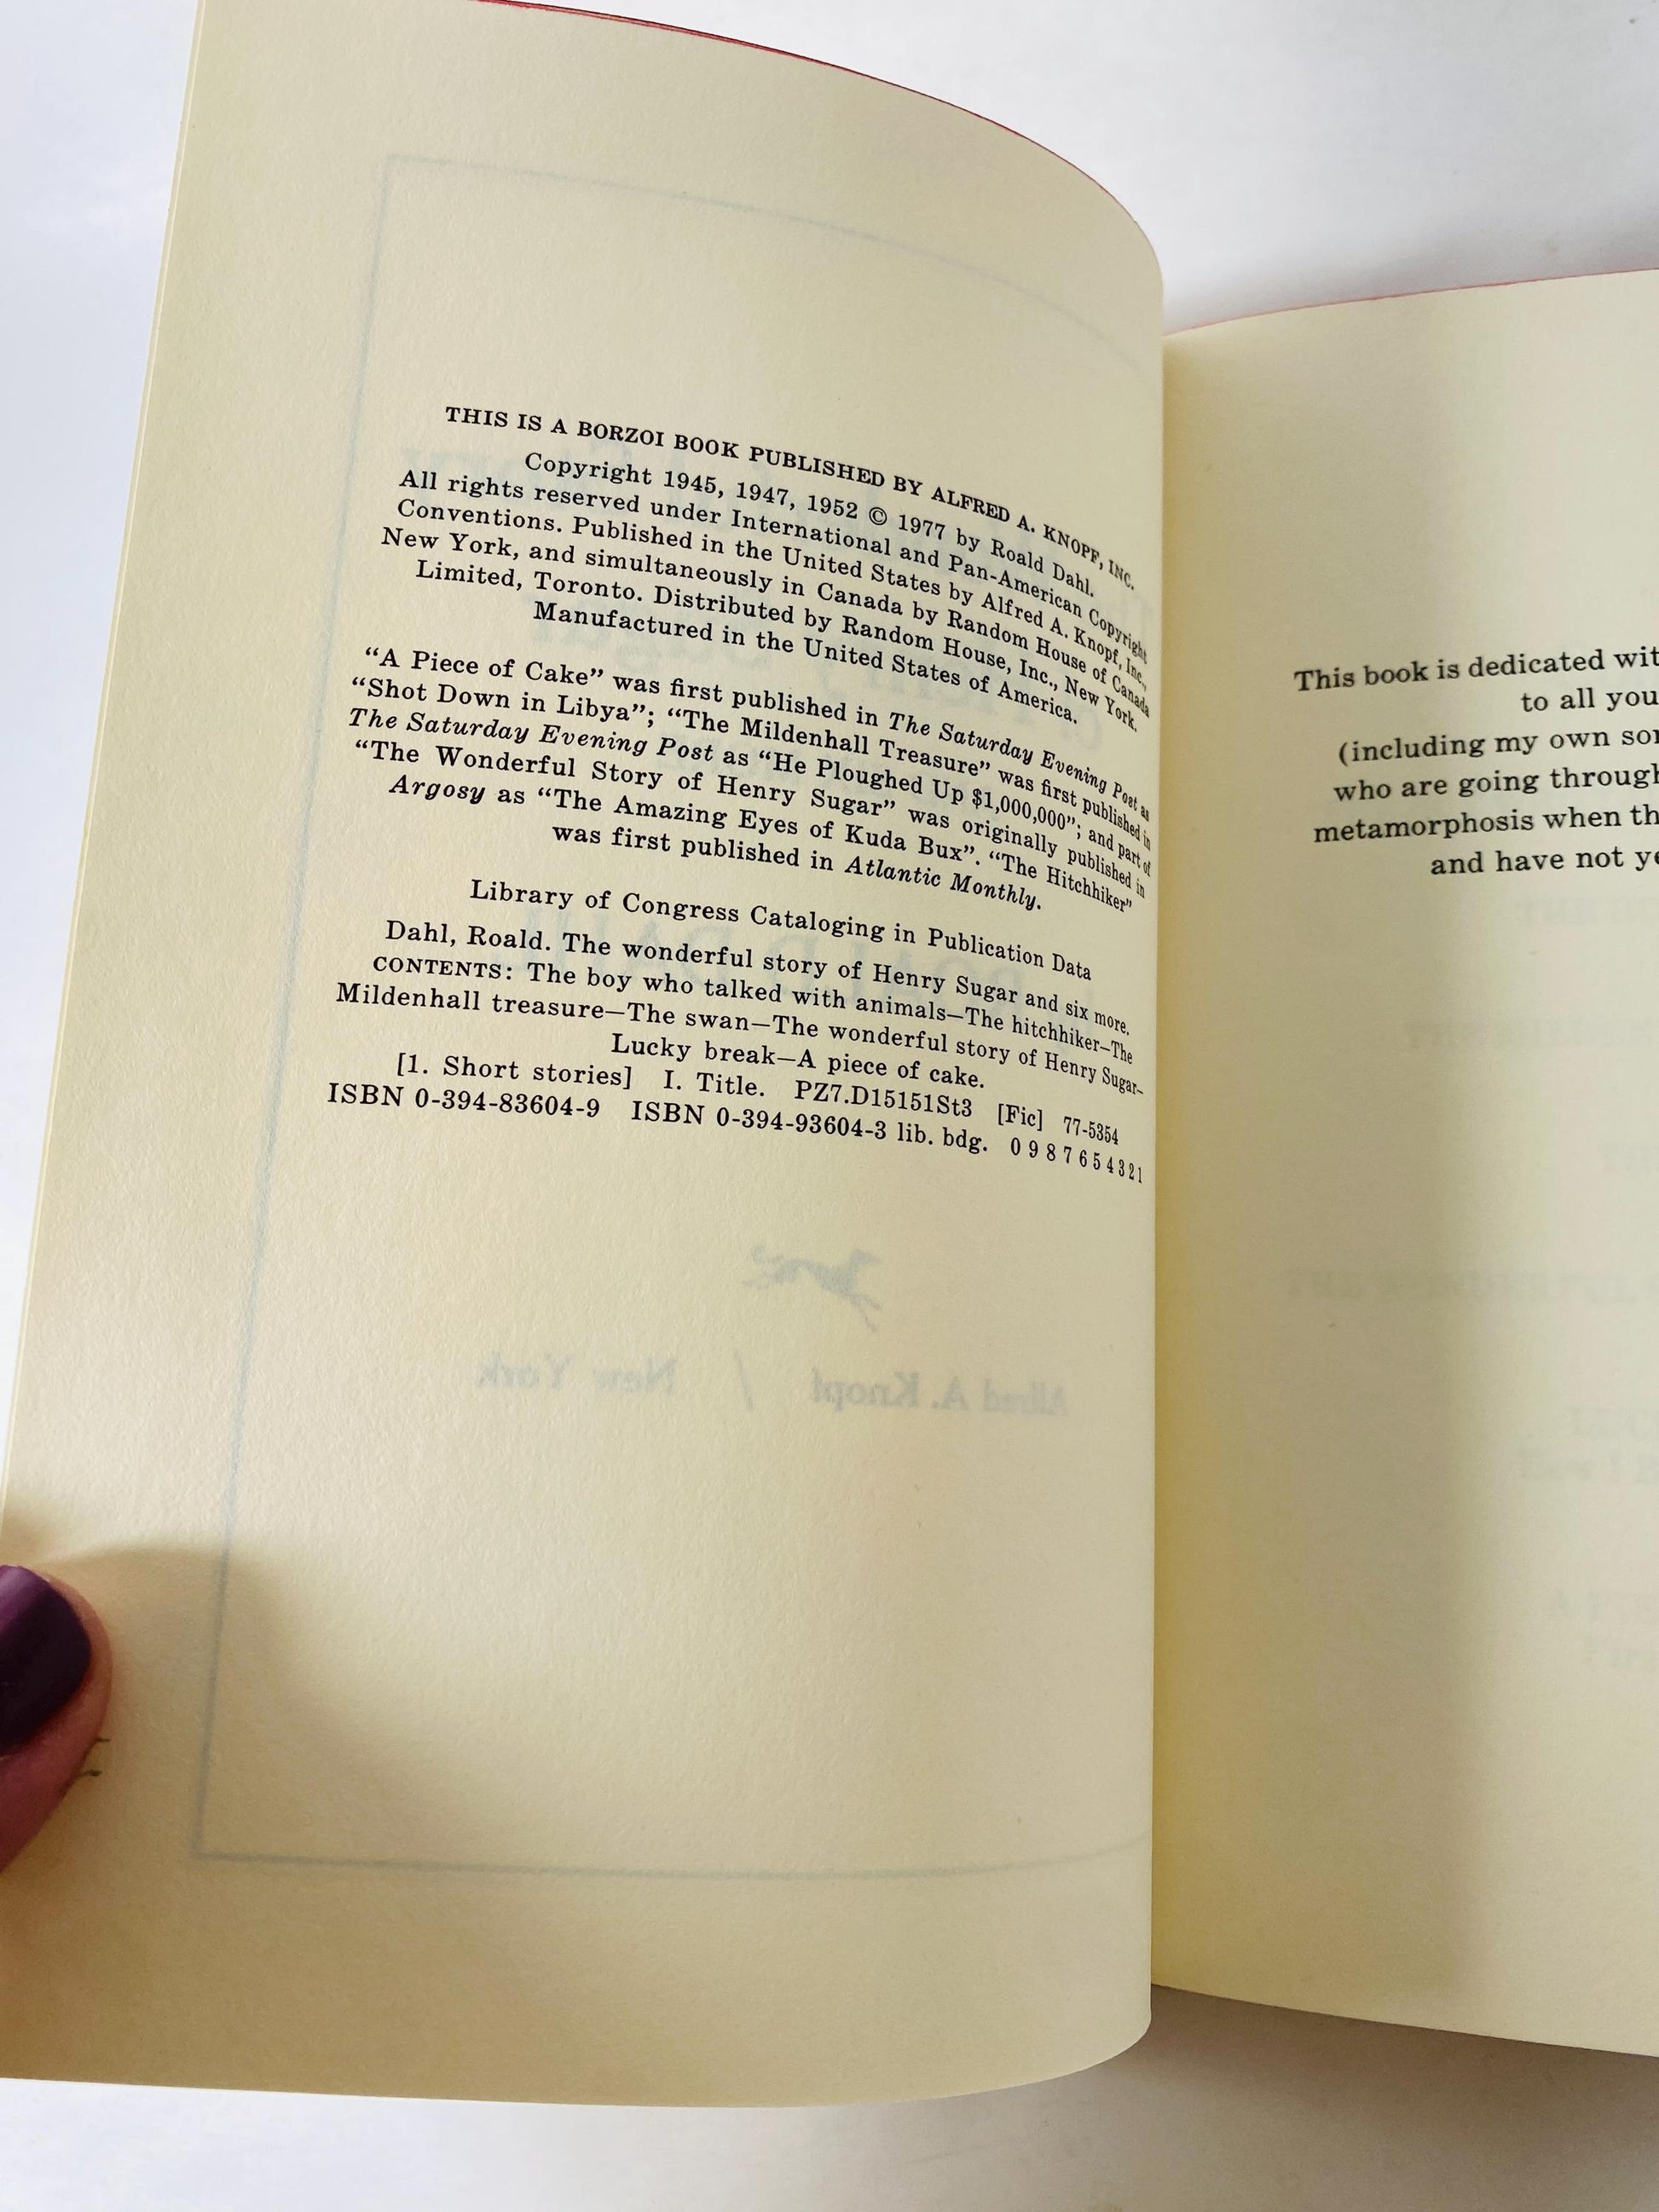 THIS IS A BORZOI BOOK PUBLISHED BY ALFRED A. KNOPF, INC.
Copyright 1945, 1947, 1952 © 1977 by Roald Dahl.
All rights reserved under International and Pan-American Copyright
Conventions. Published in the United States by Alfred A. Knopf, Inc.,
New York, and simultaneously in Canada by Random House of Canada
Limited, Toronto. Distributed by Random House, Inc., New York.
Manufactured in the United States of America.
“A Piece of Cake” was first published in The Saturday Evening Post as
“Shot Down in Libya”; “The Mildenhall Treasure” was first published in
The Saturday Evening Post as “He Ploughed Up $1,000,000”; and part of
“The Wonderful Story of Henry Sugar” was originally published in
Argosy as “The Amazing Eyes of Kuda Bux”. “The Hitchhiker”
was first published in Atlantic Monthly.
Library of Congress Cataloging in Publication Data
Dahl, Roald. The wonderful story of Henry Sugar and six more.
CONTENTS: The boy who talked with animals—The hitchhiker—The
Mildenhall treasure—The swan—The wonderful story of Henry Sugar—
Lucky break—A piece of cake.
[1. Short stories] I. Title. PZ7.D15151St3 [Fic] 77-5354
ISBN 0-394-83604-9 ISBN 0-394-93604-3 lib. bdg. 0 9 8 7 6 5 4 3 2 1
Alfred A. Knopf / New York
This book is dedicated wit
to all you
(including my own so
who are going through
metamorphosis when th
and have not ye